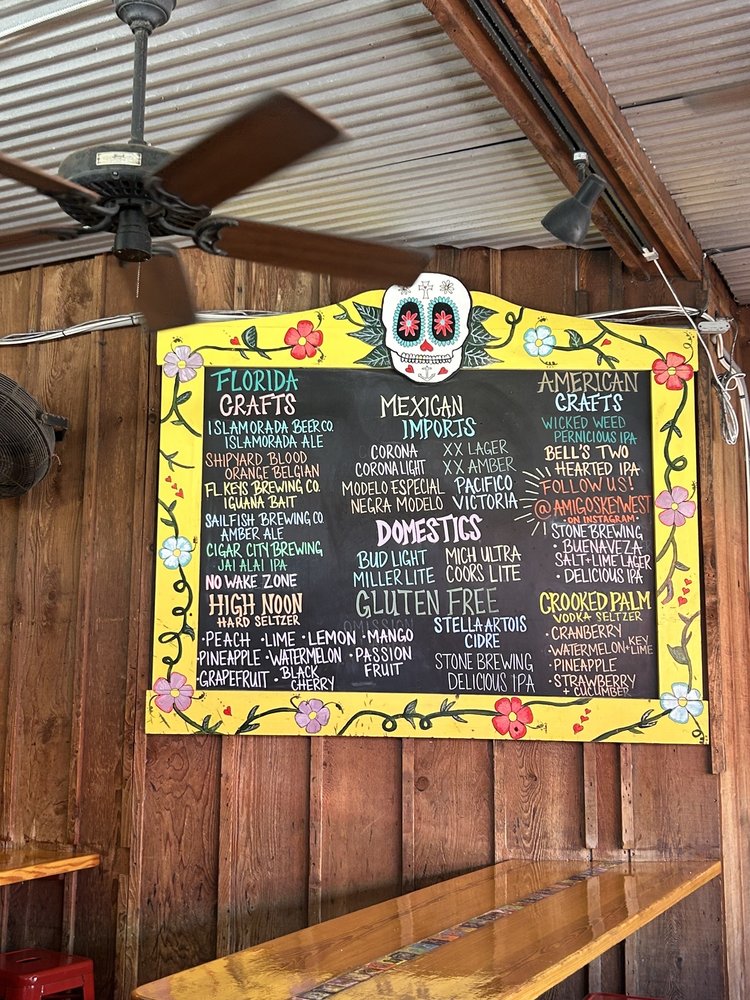 FLORIDA
CRAFTS
ISLAMORADA BEER CO.
ISLAMORADA ALE
SHIPYARD BLOOD
ORANGE BELGIAN
FL KEYS BREWING CO.
IGUANA BAIT
SAILFISH BREWING CO.
AMBER ALE
CIGAR CITY BREWING
JAI ALAI IPA
NO WAKE ZONE
HIGH NOON
HARD SELTZER
• PEACH • LIME • LEMON • MANGO
• PINEAPPLE • WATERMELON • PASSION
FRUIT
• GRAPEFRUIT • BLACK
CHERRY
MEXICAN
IMPORTS
CORONA XX LAGER
CORONA LIGHT XX AMBER
MODELO ESPECIAL PACIFICO
NEGRA MODELO VICTORIA
DOMESTICS
BUD LIGHT MICH ULTRA
MILLER LITE COORS LITE
GLUTEN FREE
OMISSION
STELLA ARTOIS
CIDRE
STONE BREWING
DELICIOUS IPA
AMERICAN
CRAFTS
WICKED WEED
PERNICIOUS IPA
BELL'S TWO
HEARTED IPA
FOLLOW US!
@AMIGOSKEYWEST
• ON INSTAGRAM •
STONE BREWING
• BUENAVEZA
SALT + LIME LAGER
• DELICIOUS IPA
CROOKED PALM
VODKA SELTZER
• CRANBERRY
• WATERMELON + KEY
LIME
• PINEAPPLE
• STRAWBERRY
+ CUCUMBER